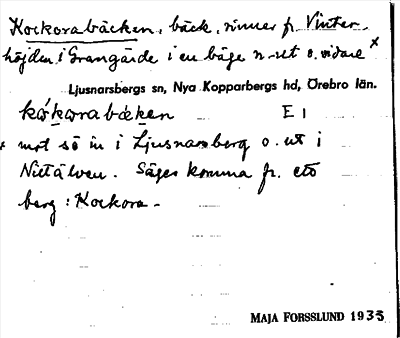 Kockorabäcken, bäck, rinner fr. Vinter-
höjden i Grangärde i en båge n-ut o. vidare x
Ljusnarsbergs sn, Nya Kopparbergs hd, Örebro län.
kǻkårabäcken E 1
x mot sö in i Ljusnarsberg o. ut i
Nittälven. Säges komma fr. ett
berg: Kockora-
MAJA FORSSLUND 1935